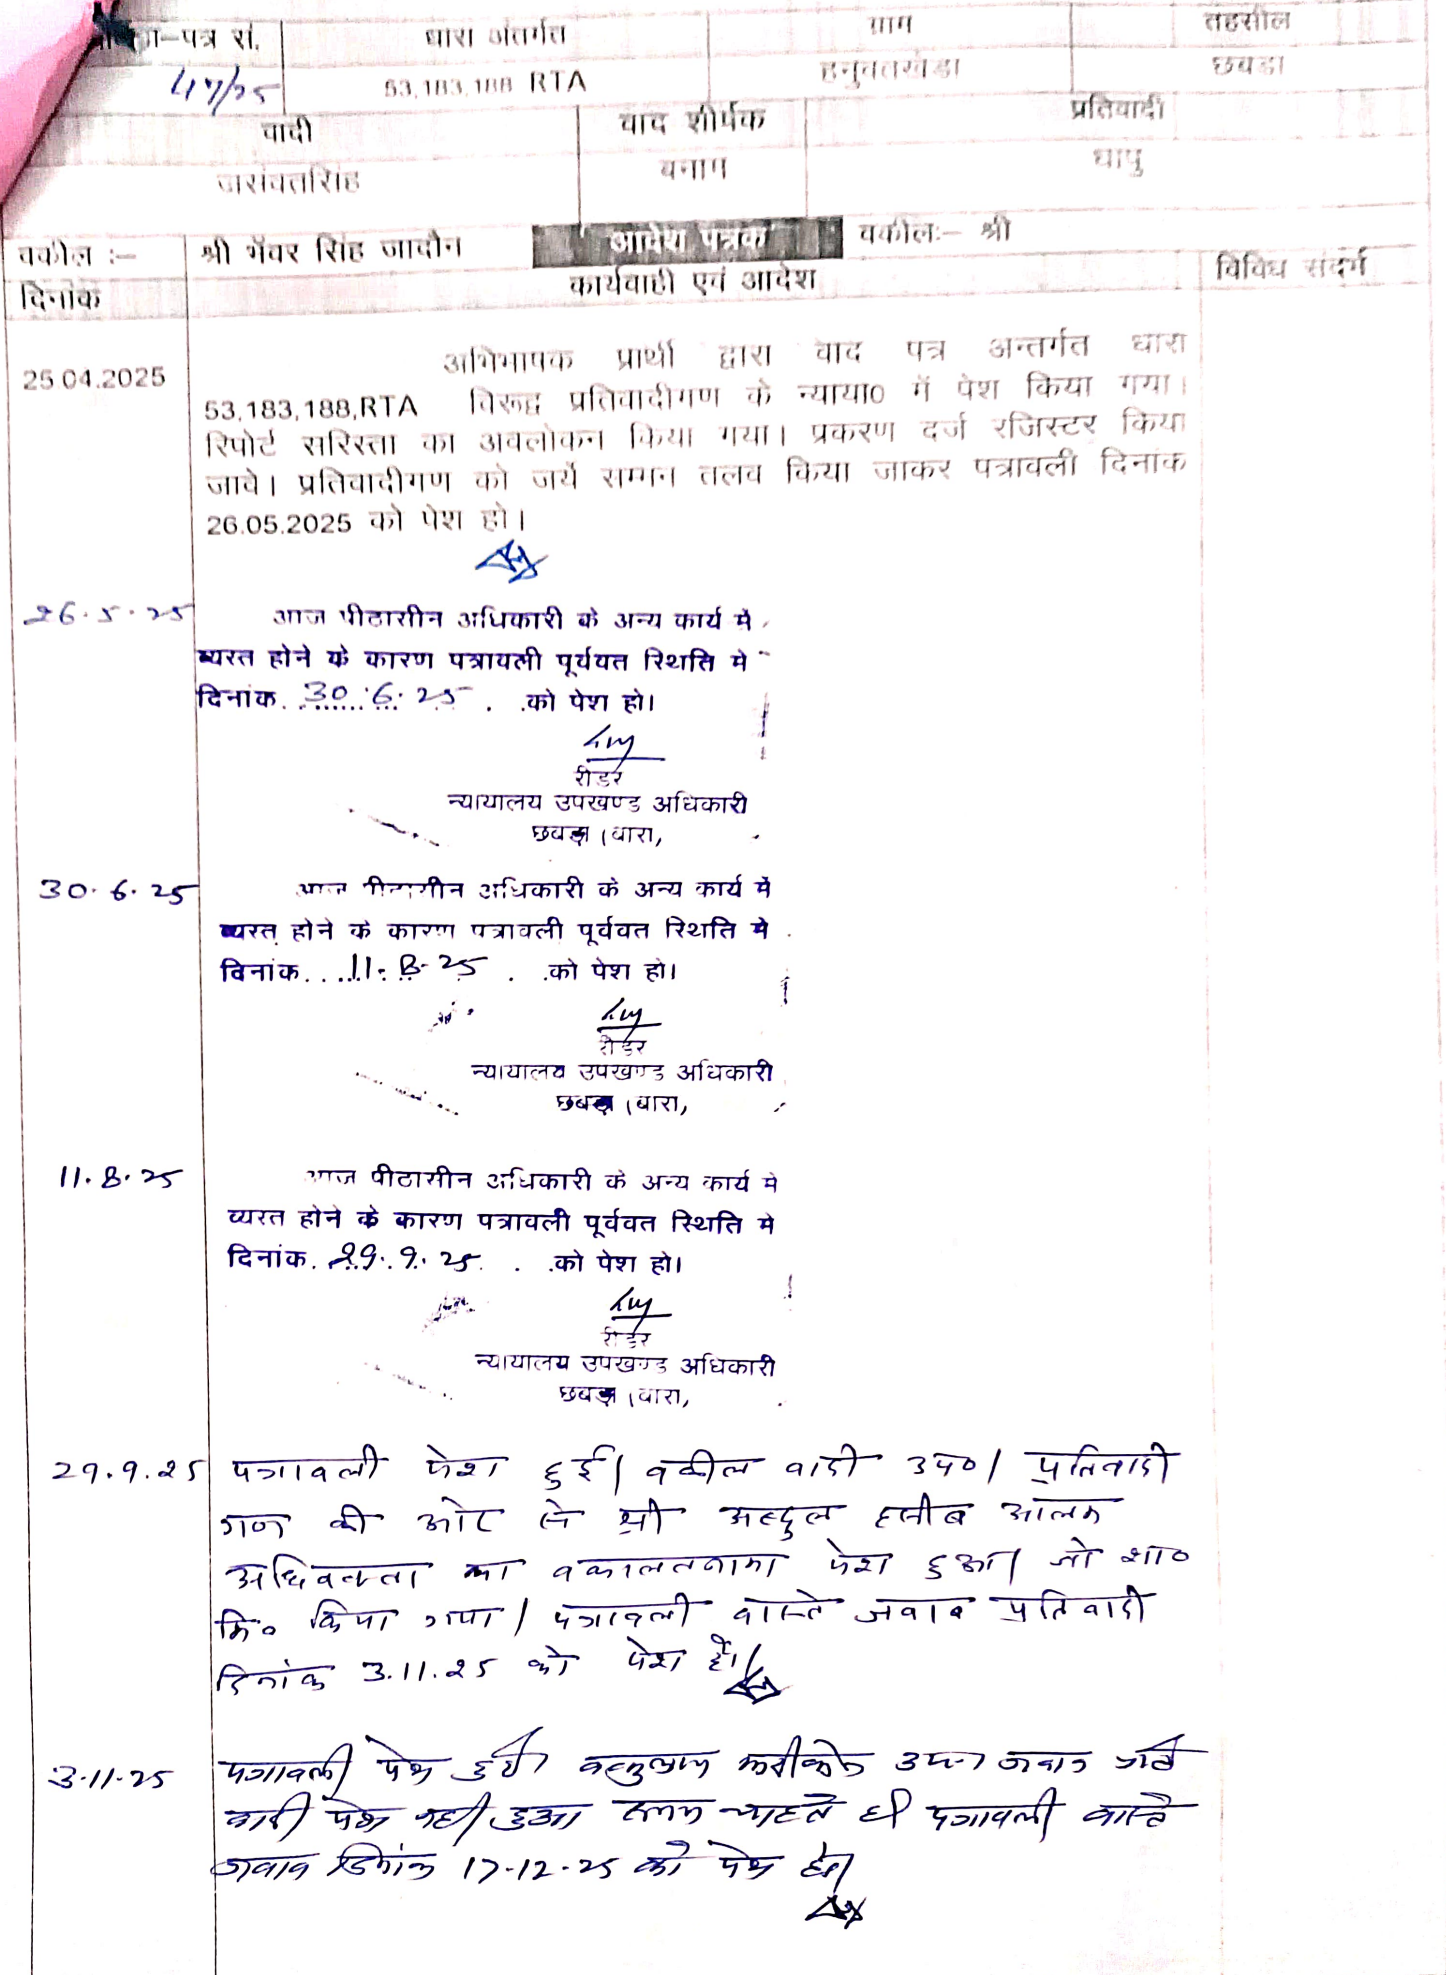 -पत्र सं. धारा अंतर्गत ग्राम तहसील
47/25 53,183,188 RTA हनुवतखेडा छबडा
वादी वाद शीर्षक प्रतिवादी
जसंवतसिंह बनाम धापु
वकील :- श्री भॅवर सिंह जादौन आदेश पत्रक वकीलः- श्री
दिनांक कार्यवाही एवं आदेश विविध संदर्भ
25.04.2025 अभिभाषक प्रार्थी द्वारा वाद पत्र अन्तर्गत धारा
53,183,188,RTA विरूद्व प्रतिवादीगण के न्याया0 में पेश किया गया।
रिपोर्ट सरिस्ता का अवलोकन किया गया। प्रकरण दर्ज रजिस्टर किया
जावे। प्रतिवादीगण को जर्ये सम्मन तलब किया जाकर पत्रावली दिनांक
26.05.2025 को पेश हो।
26.5.25 आज पीठासीन अधिकारी के अन्य कार्य में
व्यस्त होने के कारण पत्रावली पूर्ववत स्थिति मे
दिनांक. 30.6.25 . .को पेश हो।
रीडर
न्यायालय उपखण्ड अधिकारी
छबड़ा (बारा,
30.6.25 आज पीठासीन अधिकारी के अन्य कार्य में
व्यस्त होने के कारण पत्रावली पूर्ववत स्थिति मे
दिनांक. . 11.8.25 . .को पेश हो।
रीडर
न्यायालय उपखण्ड अधिकारी
छबड़ा (बारा,
11.8.25 आज पीठासीन अधिकारी के अन्य कार्य मे
व्यस्त होने के कारण पत्रावली पूर्ववत स्थिति मे
दिनांक. 29.9.25 . .को पेश हो।
रीडर
न्यायालय उपखण्ड अधिकारी
छबड़ा (बारा,
29.9.25 पत्रावली पेश हुई। वकील वादी उप०। प्रतिवादी
गण की ओर से श्री अब्दुल हसीब आलम
अधिवक्ता का वकालतनामा पेश हुआ। जो शा०
मि० किया गया। पत्रावली वास्ते जवाब प्रतिवादी
दिनांक 3.11.25 को पेश हो।
3.11.25 पत्रावली पेश हुई। उप० जवाब प्रति
वादी पेश नही हुआ समय चाहते है पत्रावली वास्ते
जवाब दिनांक 17-12-25 को पेश हो।